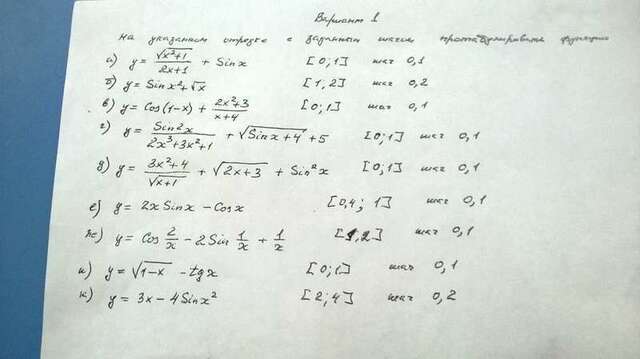 Вариант 1
на указанном отрезке с заданным шагом протабулировать функцию
а) y = √(x²+1)/(2x+1) + Sinx [0;1] шаг 0,1
б) y = Sinx²+√x [1,2] шаг 0,2
в) y = Cos(1-x) + (2x²+3)/(x+4) [0;1] шаг 0,1
г) y = Sin2x/(2x³+3x²+1) + √(Sinx+4) + 5 [0;1] шаг 0,1
д) y = (3x²+4)/√(x+1) + √(2x+3) + Sin²x [0;1] шаг 0,1
е) y = 2xSinx - Cosx [0,4; 1] шаг 0,1
ж) y = Cos 2/x - 2Sin 1/x + 1/x [1,2] шаг 0,1
и) y = √(1-x) - tgx [0;1] шаг 0,1
к) y = 3x - 4Sinx² [2;4] шаг 0,2